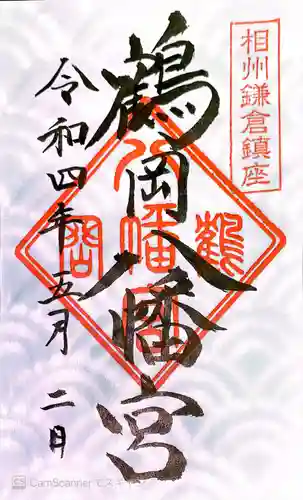 相州鎌倉鎮座
鶴岡八幡宮
令和四年五月二日
鶴岡八幡宮
CamScanner でスキャン